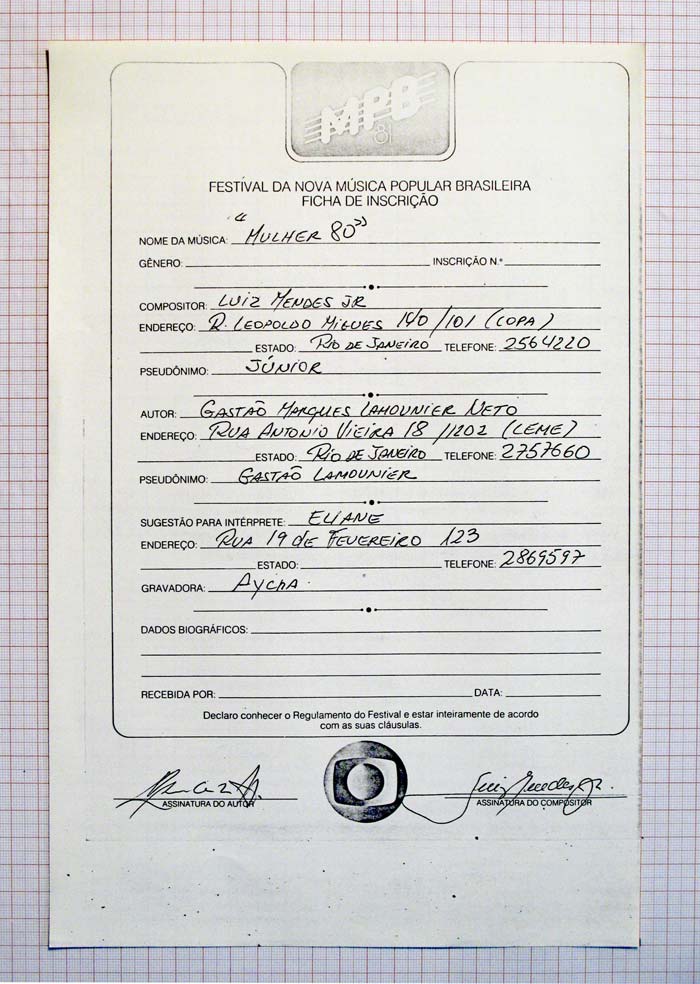 MPB
81
FESTIVAL DA NOVA MÚSICA POPULAR BRASILEIRA
FICHA DE INSCRIÇÃO
NOME DA MÚSICA: "MULHER 80"
GÊNERO: INSCRIÇÃO N.º
COMPOSITOR: LUIZ MENDES JR
ENDEREÇO: R. LEOPOLDO MIGUES 140/101 (COPA)
ESTADO: RIO DE JANEIRO TELEFONE: 2564220
PSEUDÔNIMO: JÚNIOR
AUTOR: GASTÃO MARQUES LAMOUNIER NETO
ENDEREÇO: RUA ANTONIO VIEIRA 18 /1202 (LEME)
ESTADO: RIO DE JANEIRO TELEFONE: 2757660
PSEUDÔNIMO: GASTÃO LAMOUNIER
SUGESTÃO PARA INTÉRPRETE: ELIANE
ENDEREÇO: RUA 19 DE FEVEREIRO 123
ESTADO: TELEFONE: 2869597
GRAVADORA: AYCHA.
DADOS BIOGRÁFICOS:
RECEBIDA POR: DATA:
Declaro conhecer o Regulamento do Festival e estar inteiramente de acordo
com as suas cláusulas.
Luiz Mendes Jr.
ASSINATURA DO AUTOR ASSINATURA DO COMPOSITOR